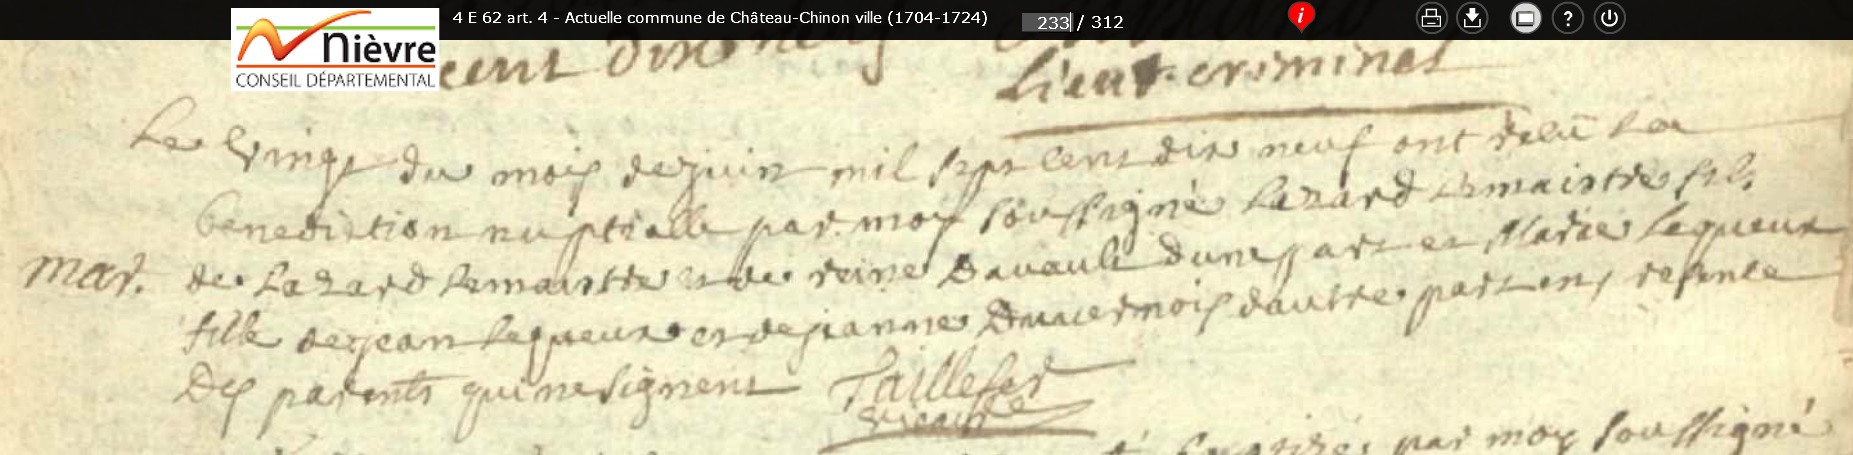 4 E 62 art. 4 - Actuelle commune de Château-Chinon ville (1704-1724)
233 / 312
Nièvre
CONSEIL DÉPARTEMENTAL
cent dix neuf
Lieut. criminel
Le vingt du mois de juin mil sept cent dix neuf ont receu la
benediction nuptialle par moy soussigné Lazard Lemaistre fils
mar. de Lazard Lemaistre et de reine d'une part et Marie Lequeux
fille de jean Lequeux et de jeanne d'autre part en presence
Des parents qui ne signent Taillefer
par moy soussigné